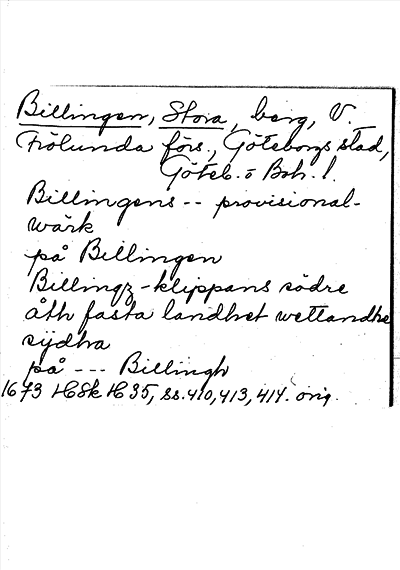 Billingen, Stora, berg, V.
Frölunda förs., Göteborgs stad,
Göteb. o Boh. l.
Billingens -- provisional-
wärk
på Billingen
Billingz-klippans södre
åth fasta landhet wettandhe
sijdha
på --- Billingh
1673 HSk H 35, ss. 410, 413, 414. orig.